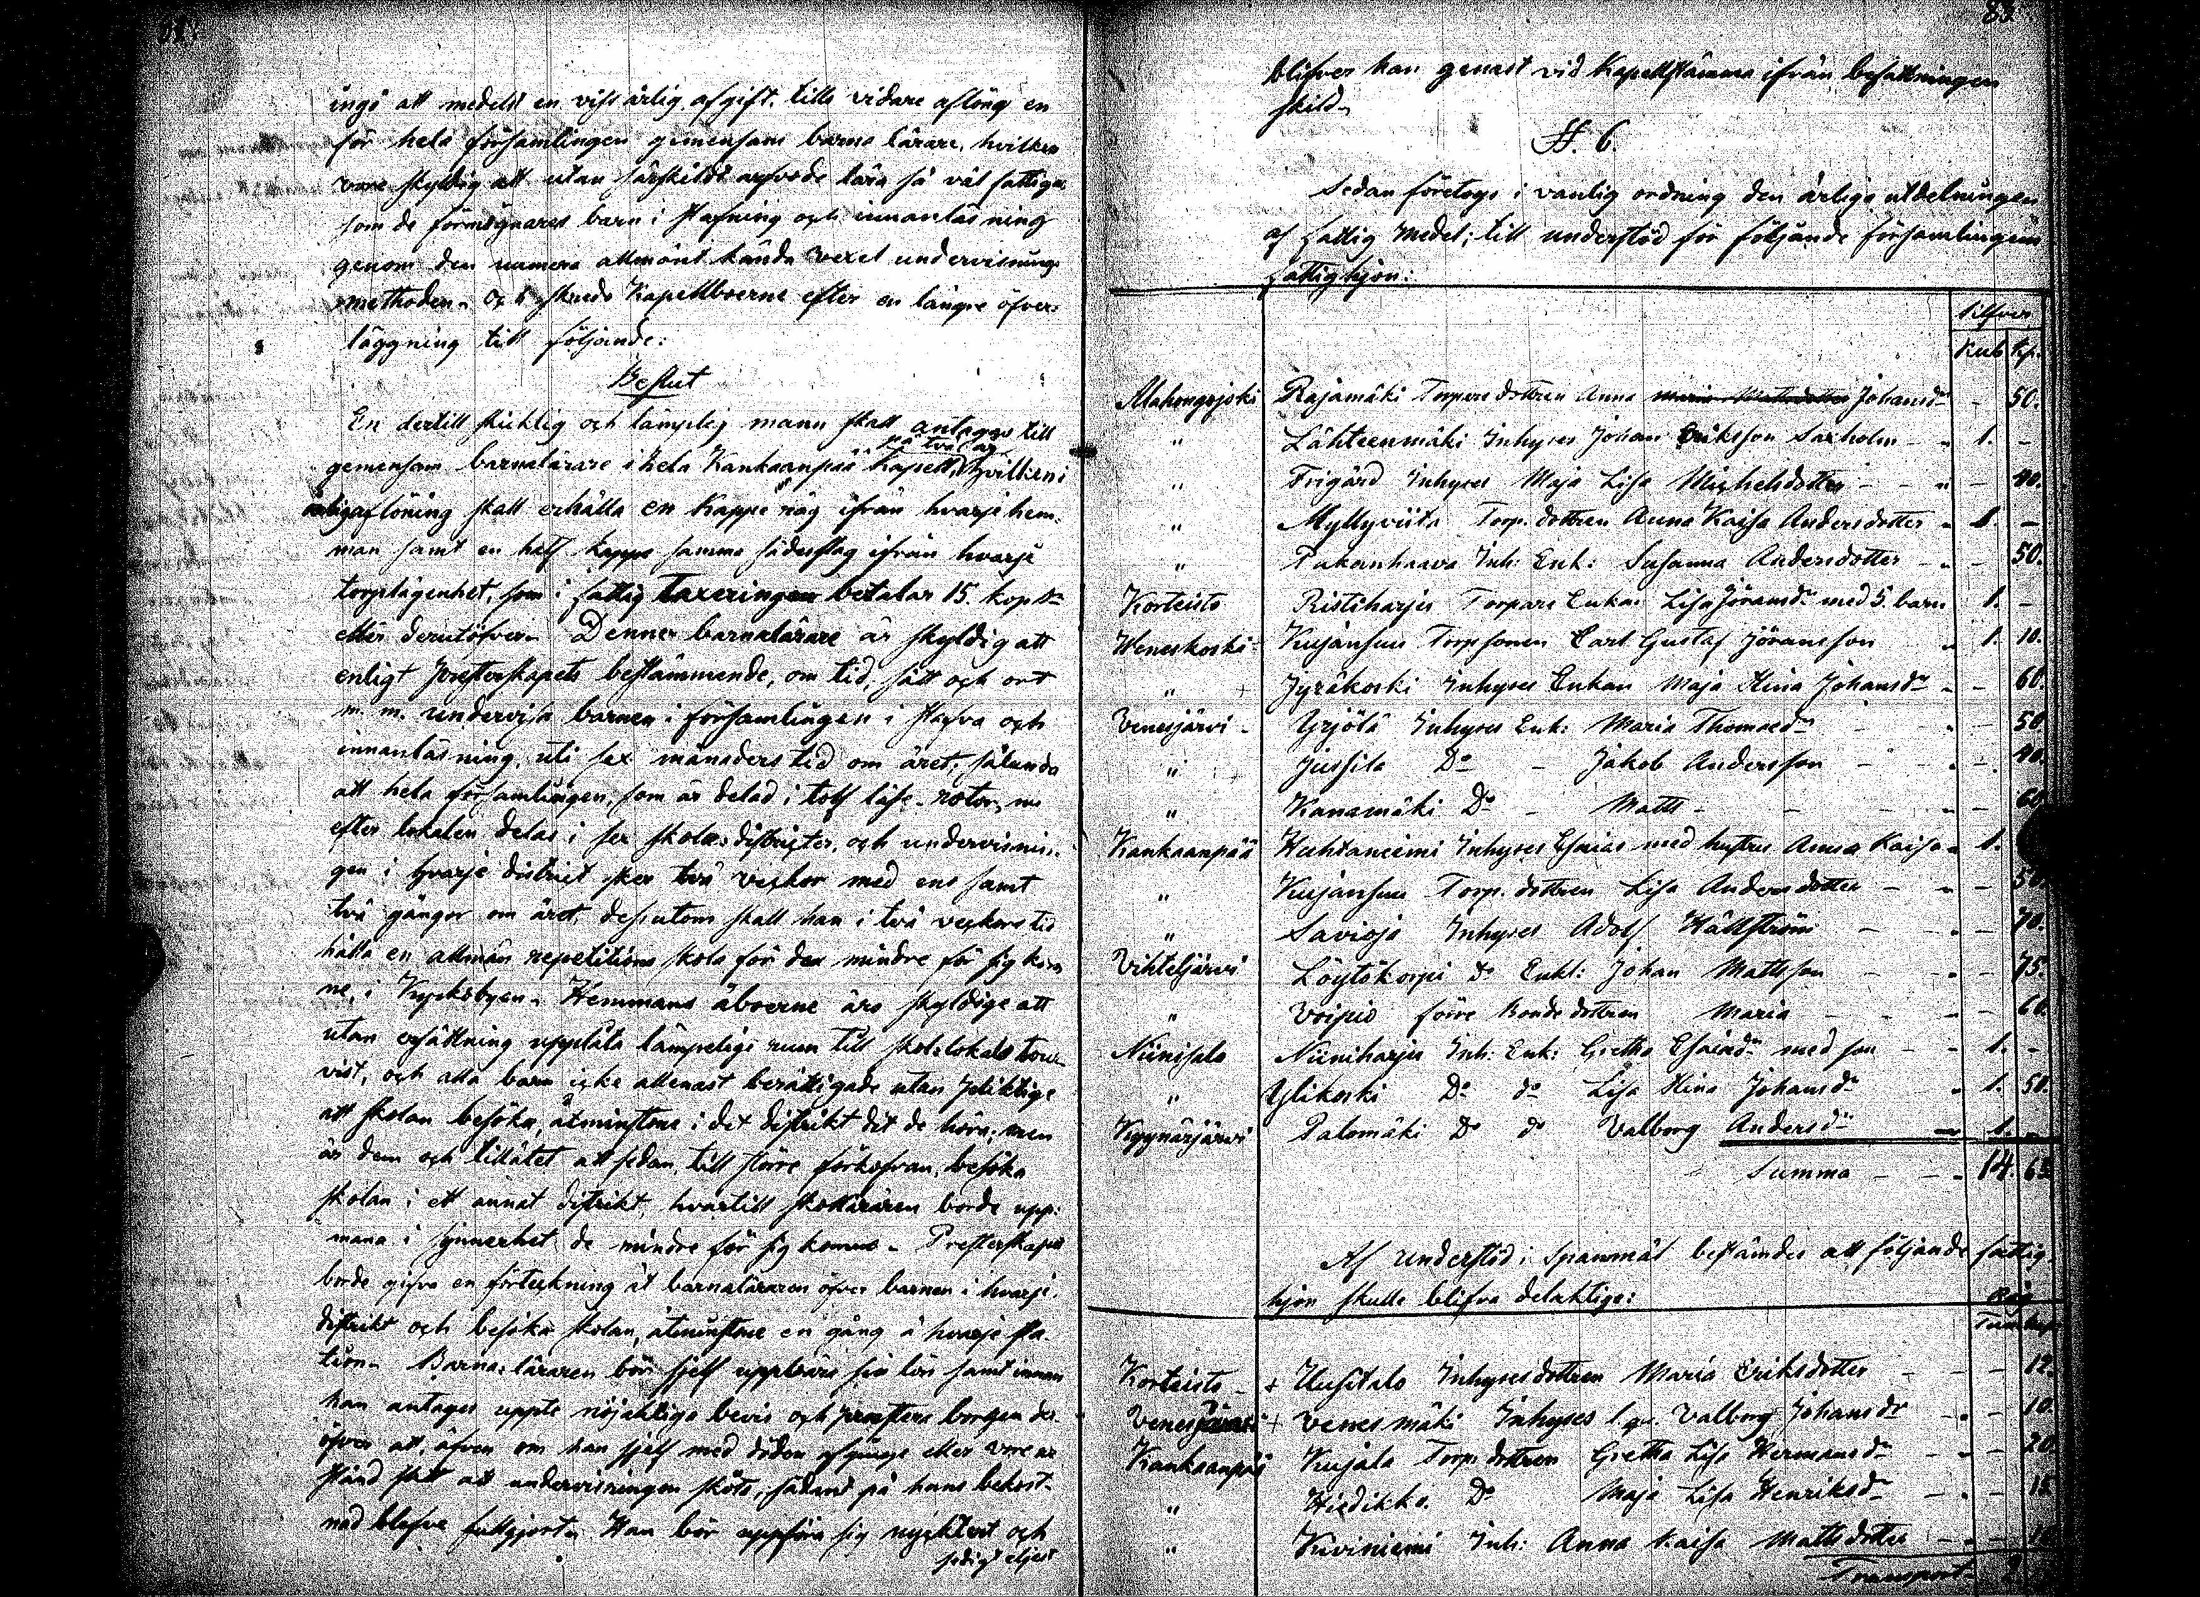 ingå att medelst en viss årlig afgift, tills vidare aflöna en
för hela församlingen gemensam barna lärare, hvilken
vore skyldig att utan särskildt arfvode lära så väl fattigas
som de förmögnares barn i stafning och innanläsning
genom den numera allmänt kända vexel undervisnings
methoden. Och skreds Kapellboerne efter en längre öfver-
läggning till följande:
Beslut
En dertill skicklig och lämplig mann skall antagas till
på två år
gemensam barnalärare i hela Kankaanpää Kapell, hvilken i
årlig aflöning skall erhålla en Kappe råg ifrån hvarje hem-
man samt en half kappe samma sädesslag ifrån hvarje
torplägenhet, som i fattig taxeringen betalar 15. kop. Sr
eller derutöfver. Denne barnalärare är skyldig att
enligt presterskapets bestämmande, om tid, sätt och ort
m. m. undervisa barnen i församlingen i stafva och
innanläsning, uti sex månaders tid om året, sålunda
att hela församlingen, som är delad i tolf läse-rotor, nu
efter lokalen delas i sex skole-distrikter, och undervisnin-
gen i hvarje district sker två veckor med ens samt
två gånger om året, dessutom skall han i två veckors tid
hålla en allmän repetitions skola för den mindre för sig kom
ne, i Kyrkobyen. Hemmans åboerne äro skyldige att
utan ersättning upplåta lämpelige rum till skolelokals
vist, och alla barn icke allenast berättigade utan pliktige
att skolan besöka, åtminstone i det distrikt dit de höra; men
är dem och tillåtet att sedan, till större förkofran, besöka
skolan i ett annat distrikt, hvartill skolläraren borde upp-
mana i synnerhet de mindre för sig komne. Presterskapet
borde gifva en förteckning åt barnaläraren öfver barnen i hvarje
distrikt och besöka skolan, åtminstone en gång å hvarje sta-
tion. Barna-läraren bör sjelf uppbära sin lön samt innan
han antages uppte nöjaktiga bevis och prestera borgen der
öfver att, äfven om han sjelf med döden afginge eller vore ur
stånd satt att undervisningen sköta, sådant på hans bekost-
nad blefve fullgjort. Han bör uppföra sig nycktert och
sedigt eljest
83.
blifver han genast vid Kapellstämma ifrån befattningen
skild.
§. 6.
Sedan företogs i vanlig ordning den årliga utdelningen
af fattig medel; till understöd för följande församlingens
fattighjon:
Silfver
Rub kp.
Alahongojoki Rajamäki Torpare dottren Anna Maria Mattsdotter Johansdr - 50.
" Lähteenmäki Inhyses Johan Eriksson Saxholm - 1. -
" Frigård Inhyses Maja Lisa Michelsdotter - - 40.
" Myllyviita Torp. dottren Anna Kaisa Andersdotter - 1. -
" Pakanhaava Inh: Enk: Susanna Andersdotter - - 50.
Korteisto Ristiharju Torpare Enkan Lisa Göransdr med 5. barn 1. -
Heneskoski Kujansuu Torpsonen Carl Gustaf Göransson 1. 10.
" Jyräkoski Inhyses Enkan Maja Stina Johansdr - - 60.
Venesjärvi - Yrjölä Inhyses Enk: Maria Thomasdr - 50
" Jussila Do - Jakob Andersson - - 40.
" Kanamäki Do - Matts - - 60
Kankaanpää Huhtaniemi Inhyses Esaias med hustru Anna Kaisa 1.
" Kujansuu Torp. dottren Lisa Andersdotter - - 50
" Savioja Inhyses Adolf Hällström - - 70.
Vihteljärvi Löytökorpi Do Enkl: Johan Mattsson - - 75.
" Voipio förre Bonde dottren Maria - - 60.
Niinisalo Niiniharju Inh: Enk: Gretha Esaiædr med son - 1. -
" Ylikoski Do do Lisa Stina Johansdr 1. 50.
Kyynärjärvi Palomäki Do do Valborg Andersdr 1. -
Summa - - 14. 65
Af understöd i Spannmål bestämdes att följande fattig-
hjon skulle blifva delaktige:
Råg
Tunn. kp.
Korteisto - + Uusitalo Inhysesdottren Maria Eriksdotter - - 12.
Venesjärvi + Venesmäki Inhyses Valborg Johansdr - - 10.
Kankaanpää Kujala Torp. dottren Gretha Lisa Hermansdr - - 20.
" Hiedikko. Do Maja Lisa Henriksdr - -
" Kiviniemi Inh: Anna Kaisa Mattsdotter - -
Transport